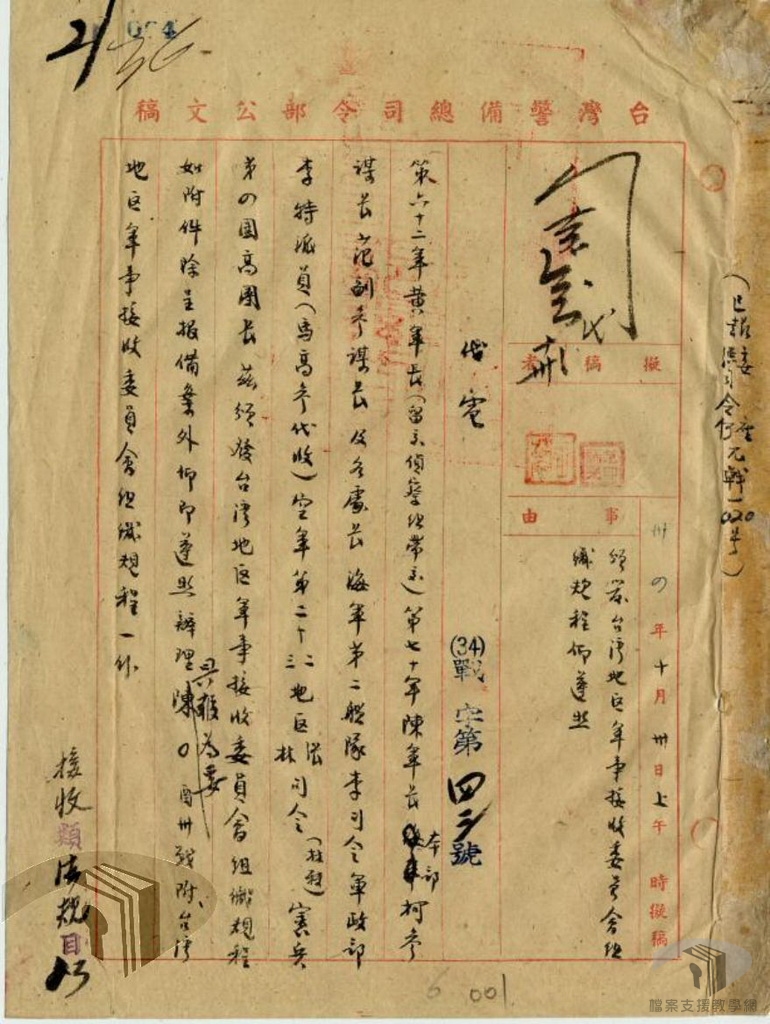 台灣警備總司令部公文稿
(已報委座
卅四年十月卅日上午 時擬稿
事由
頒發台灣地区軍事接收委員會組
織規程仰遵照
擬稿者
代電
(34)戰字第四 號
第六十二軍黃軍長(留京偵察組帶京)第七十軍陳軍長本部柯參
謀長范副參謀長及各處長海軍第二艦隊李司令軍政部
李特派員(馬高參代收)空軍第二十二三地区張林司令 憲兵
第四團高團長茲頒發台灣地区軍事接收委員會組織規程
如附件除呈报備案外仰即遵照辦理具報為要陳○酉卅戰附台灣
地区軍事接收委員會組織規程一份
接收類法規目
001
檔案支援教學網